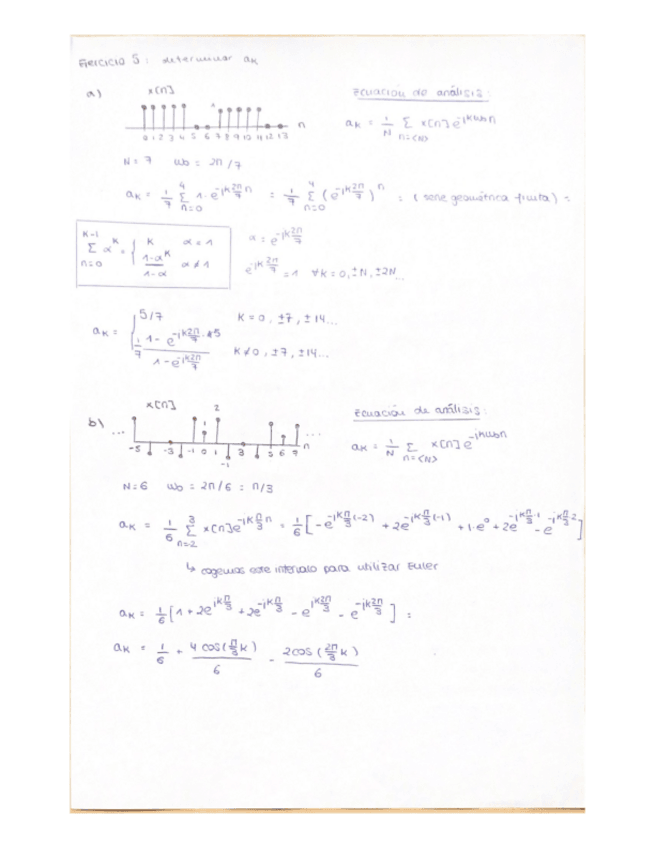 Ejercicio 5: determinar aₖ
a) x[n]
Ecuación de análisis:
0 1 2 3 4 5 6 7 8 9 10 11 12 13 n
aₖ = 1/N Σ_{n=<N>} x[n] e^{-jkω₀n}
N = 7 ω₀ = 2π/7
aₖ = 1/7 Σ_{n=0}^{4} 1·e^{-jk 2π/7 n} = 1/7 Σ_{n=0}^{4} (e^{-jk 2π/7})^n = (serie geométrica finita) =
Σ_{n=0}^{K-1} α^K = { K α = 1
(1-α^K)/(1-α) α ≠ 1
α = e^{-jk 2π/7}
e^{-jk 2π/7} = 1 ∀k = 0, ±N, ±2N...
aₖ = { 5/7 K = 0, ±7, ±14...
1/7 (1 - e^{-jk 2π/7 · 5})/(1 - e^{-jk 2π/7}) K ≠ 0, ±7, ±14...
b) x[n]
2
1
... -5 -3 -1 0 1 3 5 6 7 n ...
-1
Ecuación de análisis:
aₖ = 1/N Σ_{n=<N>} x[n] e^{-jkω₀n}
N = 6 ω₀ = 2π/6 = π/3
aₖ = 1/6 Σ_{n=2}^{3} x[n] e^{-jk π/3 n} = 1/6 [-e^{-jk π/3 (-2)} + 2e^{-jk π/3 (-1)} + 1·e^0 + 2e^{-jk π/3 · 1} - e^{-jk π/3 · 2}]
↳ cogemos este intervalo para utilizar Euler
aₖ = 1/6 [1 + 2e^{jk π/3} + 2e^{-jk π/3} - e^{jk 2π/3} - e^{-jk 2π/3}] =
aₖ = 1/6 + 4 cos(π/3 k)/6 - 2 cos(2π/3 k)/6